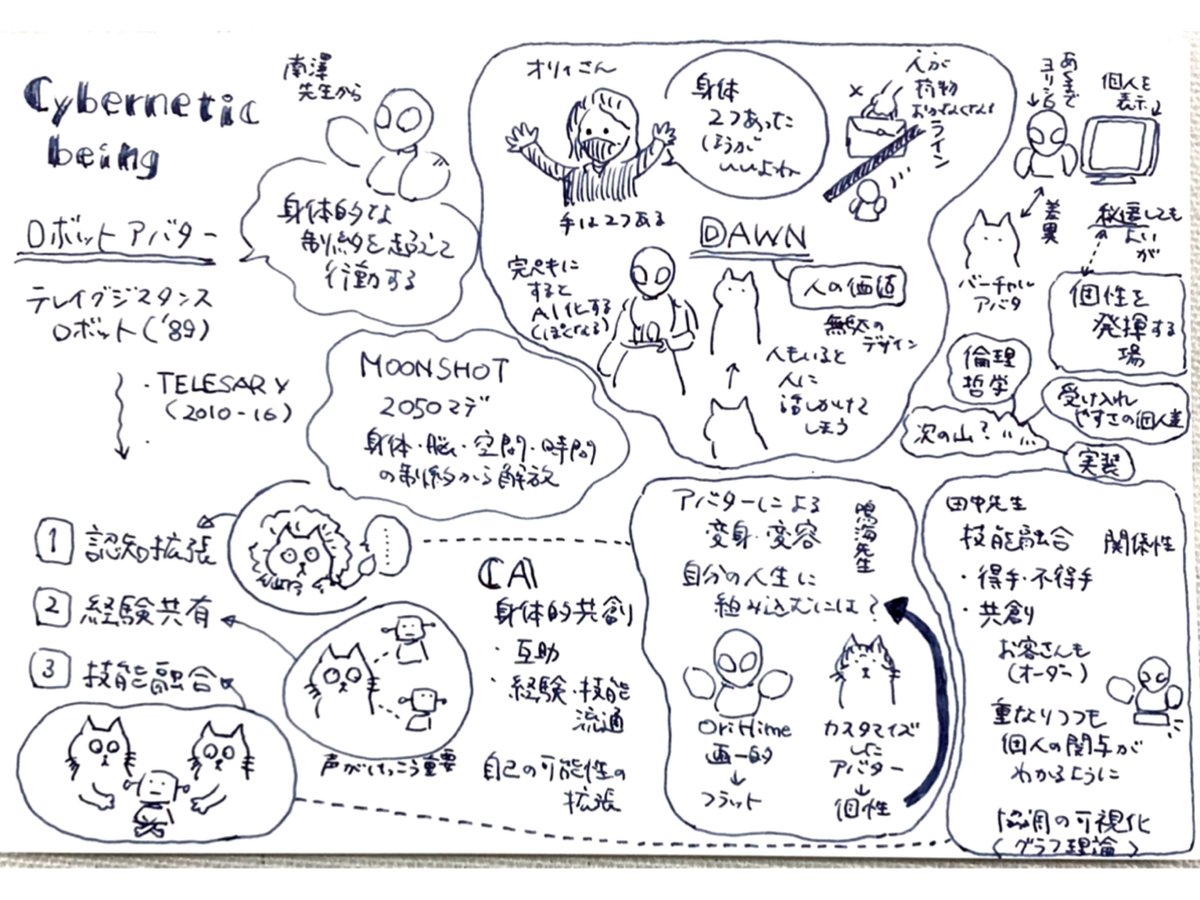 Cybernetic
being
ロボットアバター
テレイグジスタンス
ロボット('89)
・TELESAR V
(2010-16)
・
南澤
先生から
身体的な
制約を超えて
行動する
MOONSHOT
2050マデ
身体・脳・空間・時間
の制約から解放
オリィさん
手は2つある
身体
2つあった
ほうが
いいよね
×
人が
荷物
ライン
DAWN
人の価値
無駄の
デザイン
完ペキに
すると
AI化する
人もいると
人に
話しかけて
しまう
あくまで
ヨリシロ
個人を
表示
差異
バーチャル
アバタ
秘匿しても
よいが
個性を
発揮する
場
倫理
哲学
次の山?
受け入れ
やすさの個人差
実装
1 認知拡張
2 経験共有
3 技能融合
声がけっこう重要
CA
身体的共創
・互助
・経験・技能
流通
自己の可能性の
拡張
アバターによる
変身・変容
鳴海先生
自分の人生に
組み込むには?
OriHime
画一的
フラット
カスタマイズ
した
アバター
個性
田中先生
技能融合 関係性
・得手・不得手
・共創
お客さんも
(オーダー)
重なりつつも
個人の関与が
わかるように
協調の可視化
(グラフ理論)